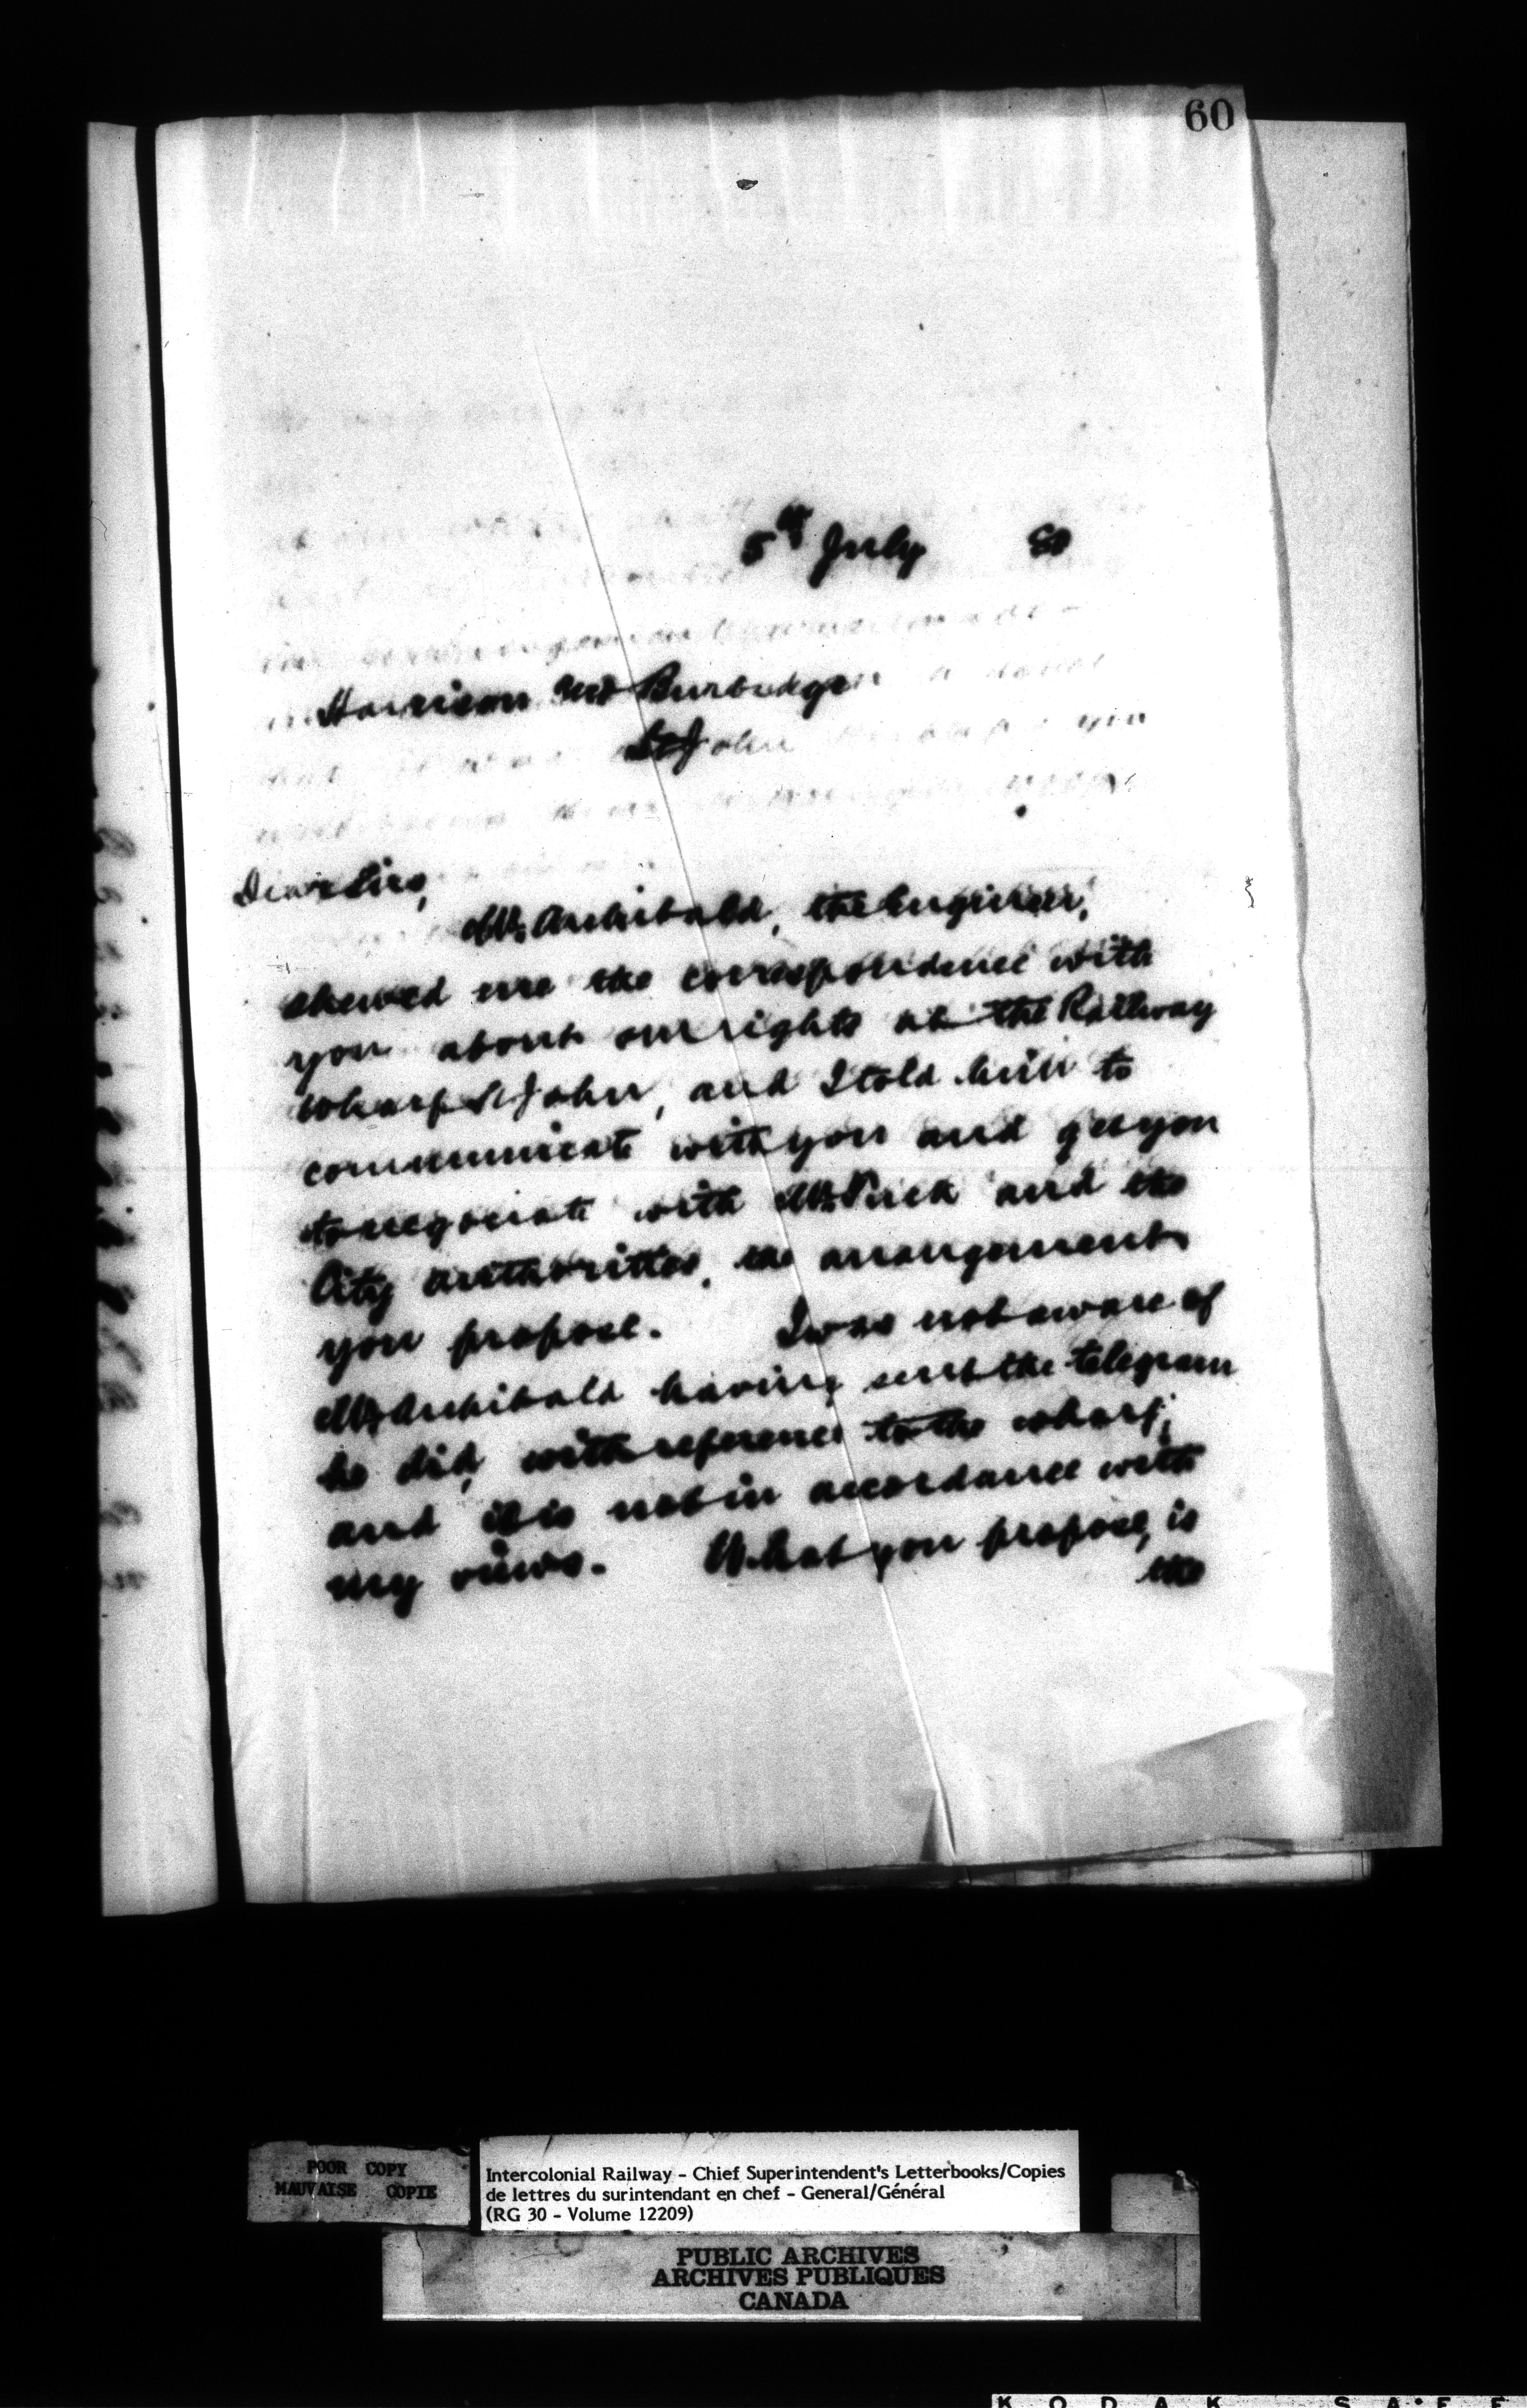 60
5th July 80
Harrison and Burbidge
St John
Dear Sirs,
Mr. Archibald, the Engineer,
shewed me the correspondence with
you about our rights at the Railway
Wharf St John, and I told him to
communicate with you and get you
to negociate with Mr. and the
City authorities, the arrangement
you propose. I was not aware of
Mr. Archibald having sent the telegram
he did, with reference to the wharf;
and it is not in accordance with
my views. What you propose, is
the
POOR COPY
MAUVAISE COPIE
Intercolonial Railway - Chief Superintendent's Letterbooks/Copies
de lettres du surintendant en chef - General/Général
(RG 30 - Volume 12209)
PUBLIC ARCHIVES
ARCHIVES PUBLIQUES
CANADA
K O D A K S A F E